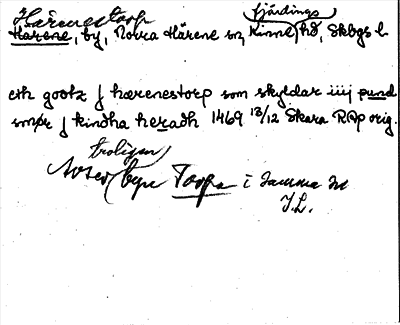 Härenestorp fjärdings
Härene, by, Norra Härene sn, Kinne hd, Skbgs l.
eth gootz j hærenestorp som skyldar iiij pund
smør j kindha heradh 1469 13/12 Skara RAp orig.
troligen
avser byn Torpa i samma sn
J.L.